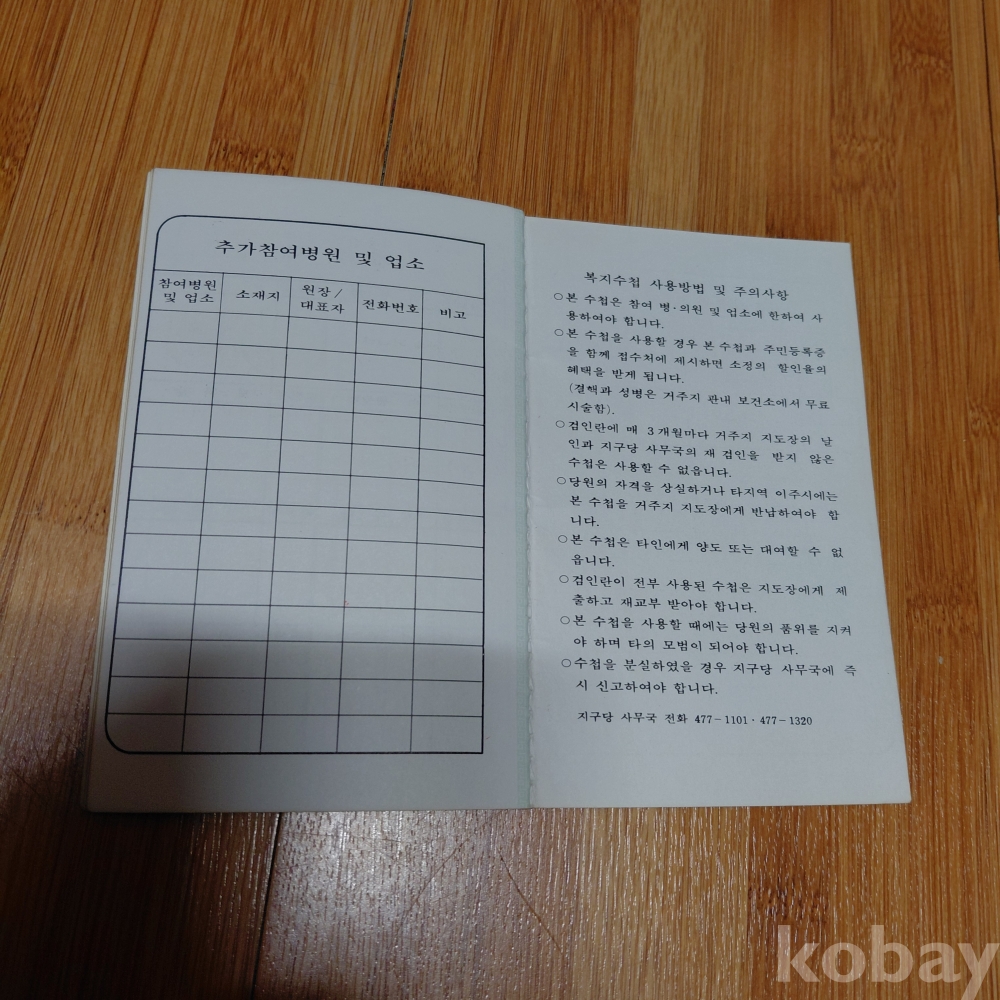 추가참여병원 및 업소
참여병원 및 업소
소재지
원장/대표자
전화번호
비고
복지수첩 사용방법 및 주의사항
○본 수첩은 참여 병·의원 및 업소에 한하여 사
용하여야 합니다.
○본 수첩을 사용할 경우 본 수첩과 주민등록증
을 함께 접수처에 제시하면 소정의 할인율의
혜택을 받게 됩니다.
(결핵과 성병은 거주지 관내 보건소에서 무료
시술함).
○검인란에 매 3개월마다 거주지 지도장의 날
인과 지구당 사무국의 재 검인을 받지 않은
수첩은 사용할 수 없읍니다.
○당원의 자격을 상실하거나 타지역 이주시에는
본 수첩을 거주지 지도장에게 반납하여야 합
니다.
○본 수첩은 타인에게 양도 또는 대여할 수 없
읍니다.
○검인란이 전부 사용된 수첩은 지도장에게 제
출하고 재교부 받아야 합니다.
○본 수첩을 사용할 때에는 당원의 품위를 지켜
야 하며 타의 모범이 되어야 합니다.
○수첩을 분실하였을 경우 지구당 사무국에 즉
시 신고하여야 합니다.
지구당 사무국 전화 477-1101·477-1320
kobay